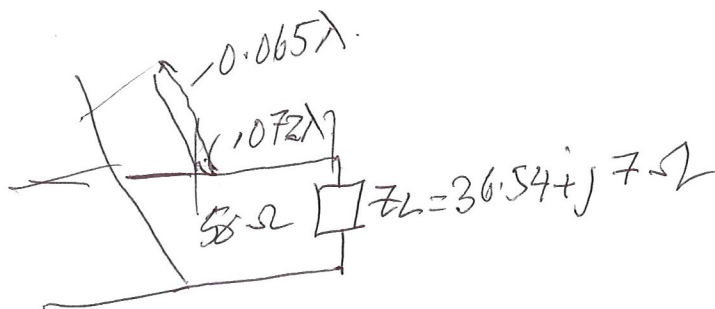 0.065λ.
.072λ
50 Ω
ZL = 36.54 + j 7 Ω